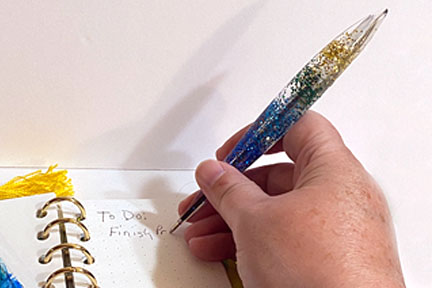 To Do:
Finish Pr